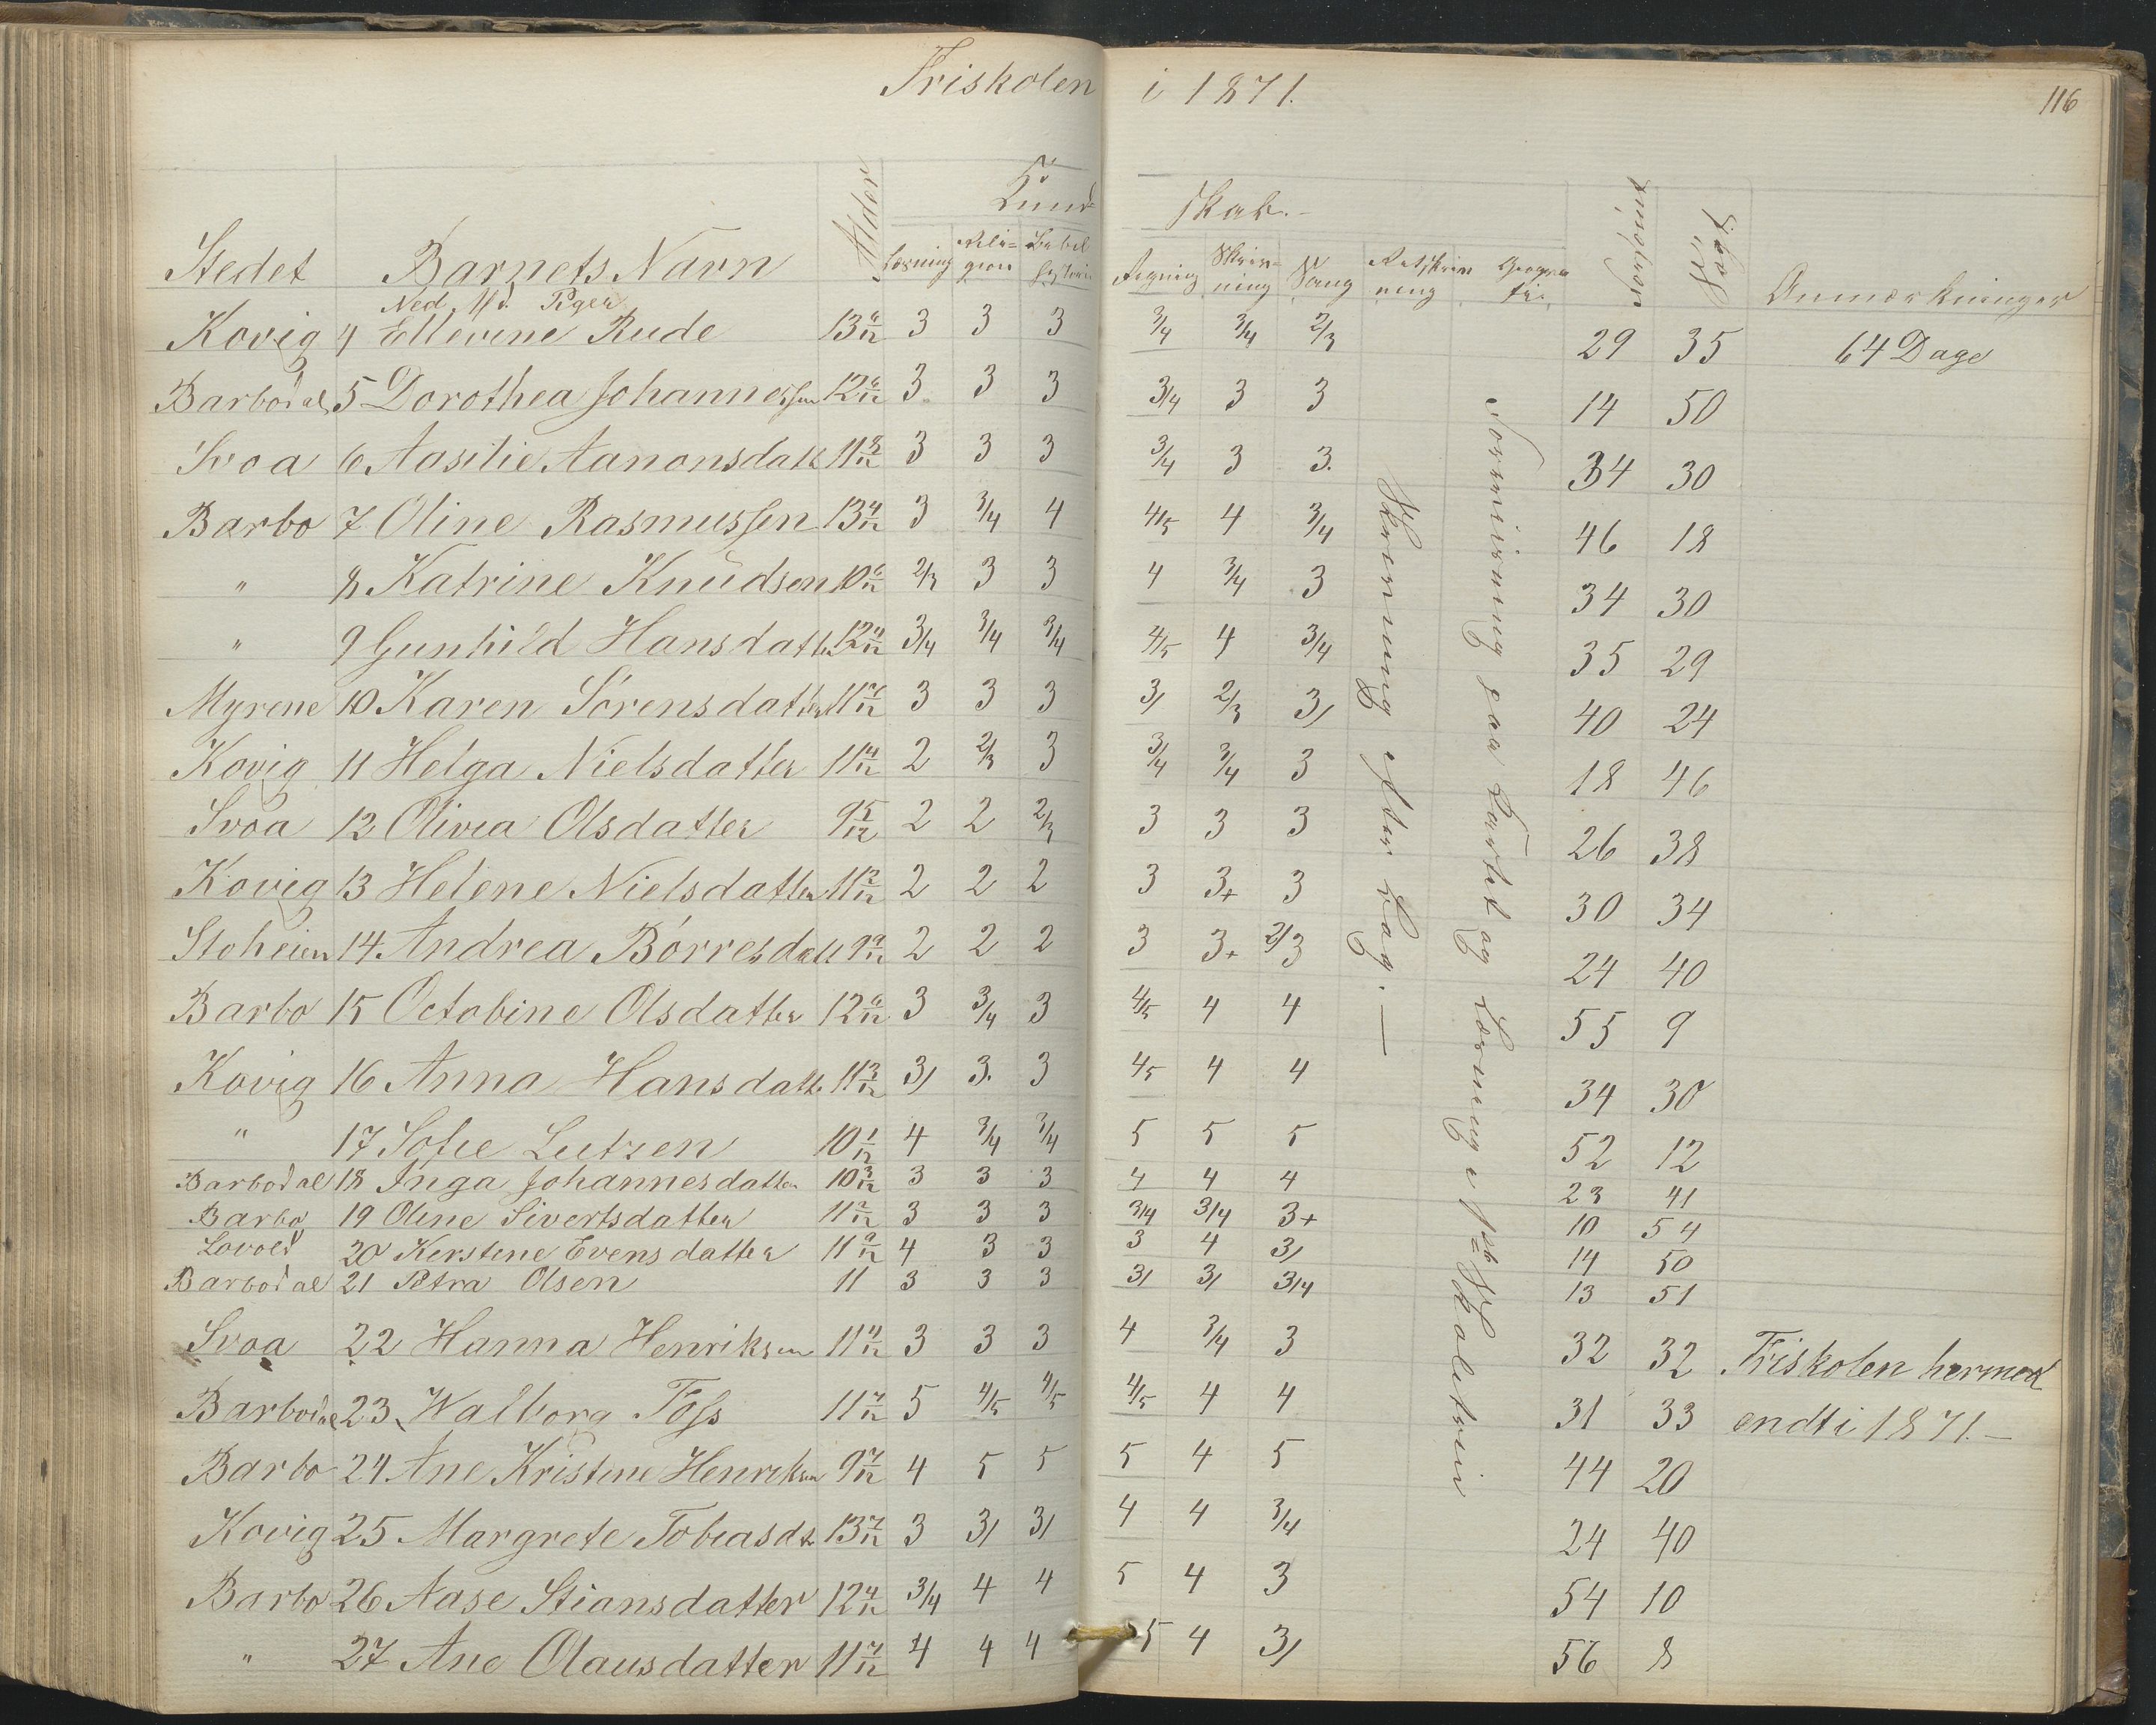 Friskolen i 1871.
116
Stedet Barnets Navn Alder Kund skab.-
Læsning Reli=gion Bibel historie Regning Skriv=ning Sang Retskrivning Geografi Anmærkninger
Ned. Afd. Piger
Kovig 4 Ellevine Rude 13 6/12 3 3 3 3/4 3/4 2/3 29 35 64 Dage
Barbodal 5 Dorothea Johannessen 12 6/12 3 3 3 3/4 3 3 14 50
Svoa 6 Aasilie Aanonsdatt 11 8/12 3 3 3 3/4 3 3. 34 30
Barbo 7 Oline Rasmussen 13 4/12 3 3/4 4 4/5 4 3/4 46 18
" 8 Katrine Knudsen 10 6/12 2/3 3 3 4 3/4 3 34 30
" 9 Gunhild Hansdatt 12 11/12 3/4 3/4 3/4 4/5 4 3/4 35 29
Myrene 10 Karen Sörensdatter 11 6/12 3 3 3 3/ 2/3 3/ 40 24
Kovig 11 Helga Nielsdatter 11 4/12 2 2/3 3 3/4 3/4 3 18 46
Svoa 12 Olivia Olsdatter 9 5/12 2 2 2/3 3 3 3 26 38
Kovig 13 Helene Nielsdatter 11 2/12 2 2 2 3 3+ 3 30 34
Stoheien 14 Andrea Börresdatt 9 9/12 2 2 2 3 3+ 2/3 24 40
Barbo 15 Octobine Olsdatter 12 6/12 3 3/4 3 4/5 4 4 55 9
Kovig 16 Anna Hansdatt. 11 3/12 3/ 3. 3 4/5 4 4 34 30
" 17 Sofie Lutzen 10 1/12 4 3/4 3/4 5 5 5 52 12
Barbodal 18 Inga Johannesdatter 10 3/12 3 3 3 4 4 4 23 41
Barbo 19 Oline Sivertsdatter 11 2/12 3 3 3 3/4 3/4 3+ 10 54
Lovold 20 Kirstine Evensdatter 11 9/12 4 3 3 3 4 3/ 14 50
Barbodal 21 Petra Olsen 11 3 3 3 3/ 3/ 3/4 13 51
Svoa 22 Hanna Henriksen 11 11/12 3 3 3 4 3/4 3 32 32 Friskolen hermed
Barbodal 23 Walborg Foss 11 7/12 5 4/5 4/5 4/5 4 4 31 33 endt i 1871.-
Barbo 24 Ane Kristine Henriksen 9 7/12 4 5 5 5 4 5 44 20
Kovig 25 Margrete Tobiasdt. 13 7/12 3 3/ 3/ 4 4 3/4 24 40
Barbo 26 Aase Stiansdatter 12 4/12 3/4 4 4 5 4 3 54 10
" 27 Ane Olausdatter 11 7/12 4 4 4 5 4 3/ 56 8
Skrivning efter Bog.-
paa Kartet og Læsning i